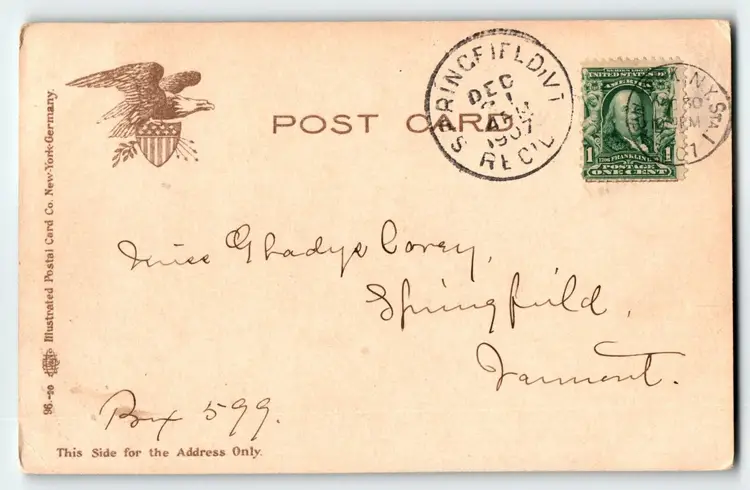 POST CARD
SPRINGFIELD, VT
DEC
AM
1907
REC'D
N.Y. STA. 1
30
SERIES 1902
UNITED STATES OF
AMERICA
1 FRANKLIN 1
POSTAGE
ONE CENT
Miss Gladys Corey,
Springfield,
Vermont.
Box 599.
This Side for the Address Only.
96.-20 Illustrated Postal Card Co. New-York-Germany.